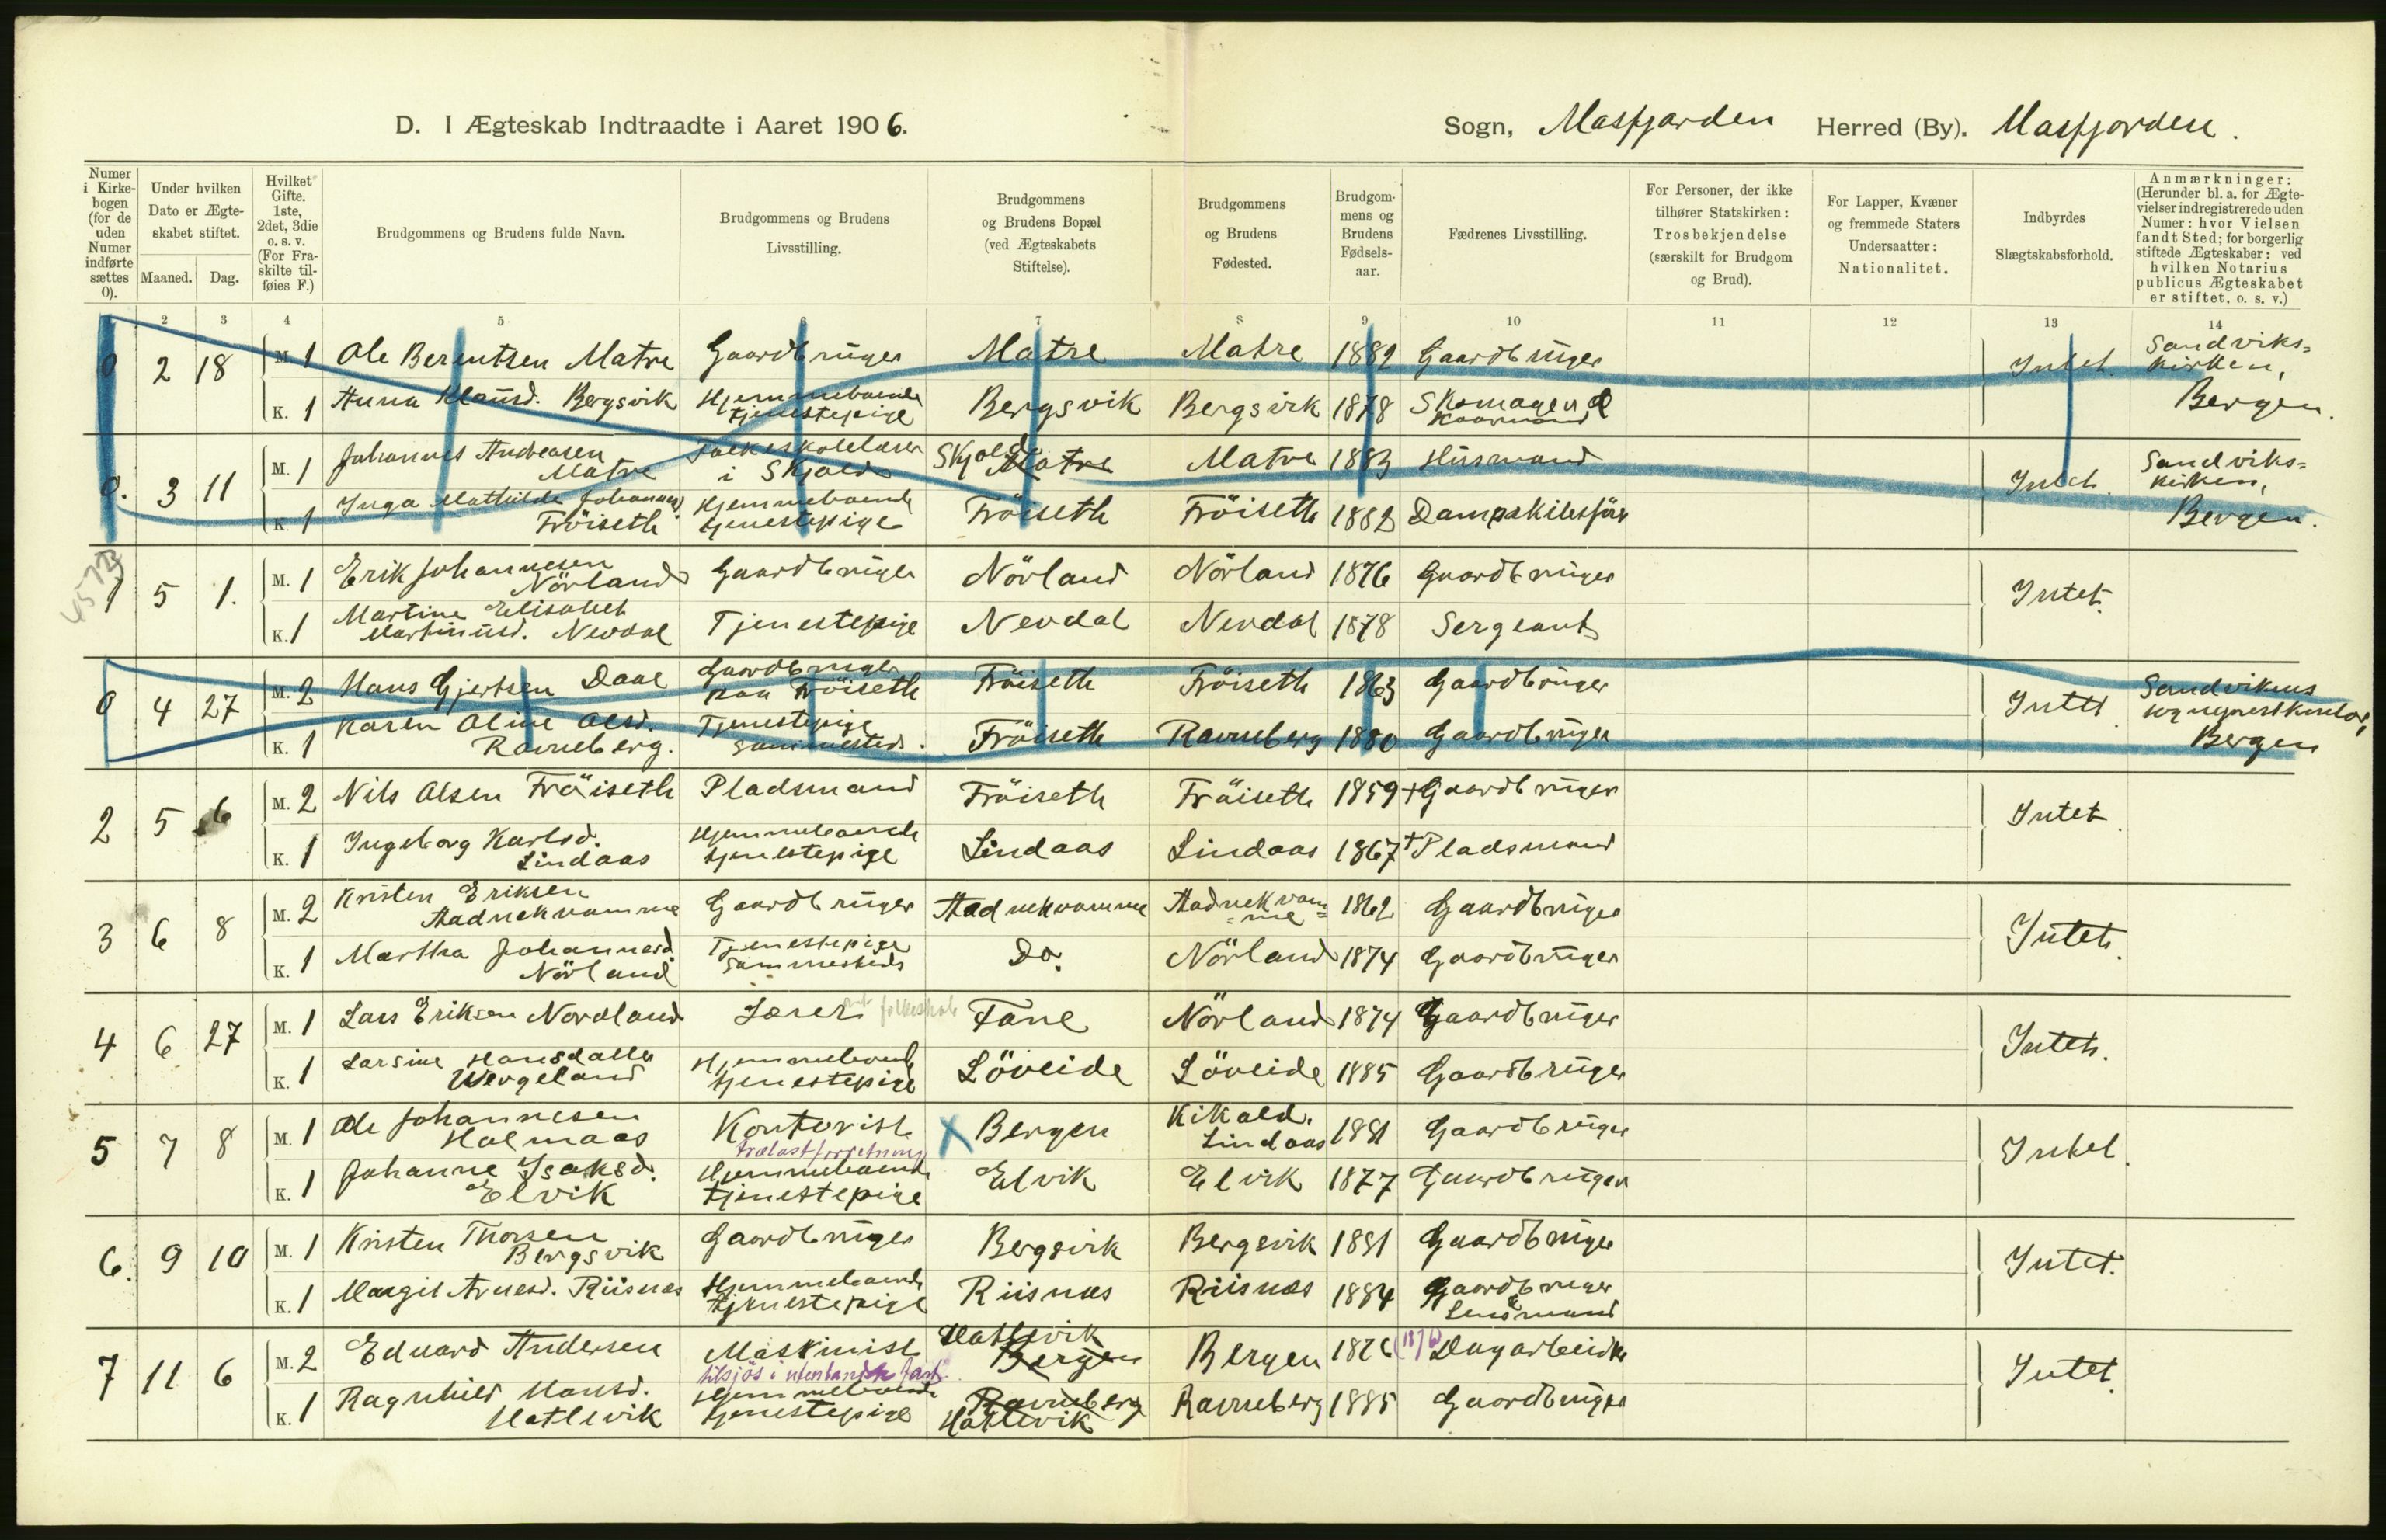 D. I Ægteskab Indtraadte i Aaret 1906. Sogn, Masfjorden Herred (By). Masfjorden.
Numer i Kirkebogen (for de uden Numer indførte sættes 0).
Under hvilken Dato er Ægteskabet stiftet.
Maaned. Dag.
Hvilket Gifte. 1ste, 2det, 3die o. s. v. (For Fraskilte tilføies F.)
Brudgommens og Brudens fulde Navn.
Brudgommens og Brudens Livsstilling.
Brudgommens og Brudens Bopæl (ved Ægteskabets Stiftelse).
Brudgommens og Brudens Fødested.
Brudgommens og Brudens Fødselsaar.
Fædrenes Livsstilling.
For Personer, der ikke tilhører Statskirken: Trosbekjendelse (særskilt for Brudgom og Brud).
For Lapper, Kvæner og fremmede Staters Undersaatter: Nationalitet.
Indbyrdes Slægtskabsforhold.
Anmærkninger: (Herunder bl. a. for Ægtevielser indregistrerede uden Numer: hvor Vielsen fandt Sted; for borgerlig stiftede Ægteskaber: ved hvilken Notarius publicus Ægteskabet er stiftet, o. s. v.)
2 3 4 5 6 7 8 9 10 11 12 13 14
0 2 18 M. 1 Ole Berentsen Matre Gaardbruger Matre Matre 1882 Gaardbruger Intet. Sandviks=kirken, Bergen.
K. 1 Anna Klausd. Bergsvik Hjemmeboende tjenestepige Bergsvik Bergsvik 1878 Skomager &
0. 3 11 M. 1 Johannes Andreasen Matre Folkeskolelærer i Skjold Skjold Matre Matre 1883 Husmand Intet. Sandviks=kirken, Bergen.
K 1 Inga Mathilde Johannesd. Fröiseth Hjemmeboende tjenestepige Fröiseth Fröiseth 1882 Dampskibsfører
1 5 1. M. 1 Erik Johannesen Nörland Gaardbruger Nörland Nörland 1876 Gaardbruger Intet.
K. 1 Martine Elisabet Martinusd. Nevdal Tjenestepige Nevdal Nevdal 1878 Sergeant
0 4 27 M. 2 Hans Gjertsen Daae Gaardbruger paa Fröiseth Fröiseth Fröiseth 1863 Gaardbruger Intet. Sandvikens sogneprestkontor, Bergen
K. 1 Karen Oline Olsd. Ravneberg. Tjenestepige sammesteds. Fröiseth Ravneberg 1880 Gaardbruger
2 5 6 M. 2 Nils Olsen Fröiseth Pladsmand Fröiseth Fröiseth 1859 + Gaardbruger Intet.
K. 1 Ingeborg Karlsd. Lindaas Hjemmeboende tjenestepige Lindaas Lindaas 1867 + Pladsmand
3 6 8 M. 2 Kristen Eriksen Aadnekvamme Gaardbruger Aadnekvamme Aadnekvam=me 1862 Gaardbruger Intet.
K. 1 Martha Johannesd. Nörland Tjenestepige sammesteds Do. Nörland 1874 Gaardbruger
4 6 27 M. 1 Lars Eriksen Nordland Lærer folkeskole Fane Nörland 1874 Gaardbruger Intet.
K. 1 Larsine Hansdatter Wergeland Hjemmeboende tjenestepige Löveide Löveide 1885 Gaardbruger
5 7 8 M. 1 Ole Johannesen Holmaas Kontorist trælastforretning X Bergen Kikald. Lindaas 1881 Gaardbruger Intet.
K. 1 Johanne Isaksd. Elvik Hjemmeboende tjenestepige Elvik Elvik 1877 Gaardbruger
6. 9 10 M. 1 Kristen Thorsen Bergsvik Gaardbruger Bergsvik Bergsvik 1881 Gaardbruger Intet.
K. 1 Margit Arnesd. Riisnæs Hjemmeboende tjenestepige Riisnæs Riisnæs 1884 Gaardbruger & Lensmand
7 11 6 M. 2 Edvard Andersen Maskinist tilsjös i utenlandsk fart. Hatlevik Bergen Bergen 1876 (1876) Dagarbeider Intet.
K. 1 Ragnhild Hansd. Hatlevik Hjemmeboende tjenestepige Ravneberg Hatlevik Ravneberg 1885 Gaardbruger